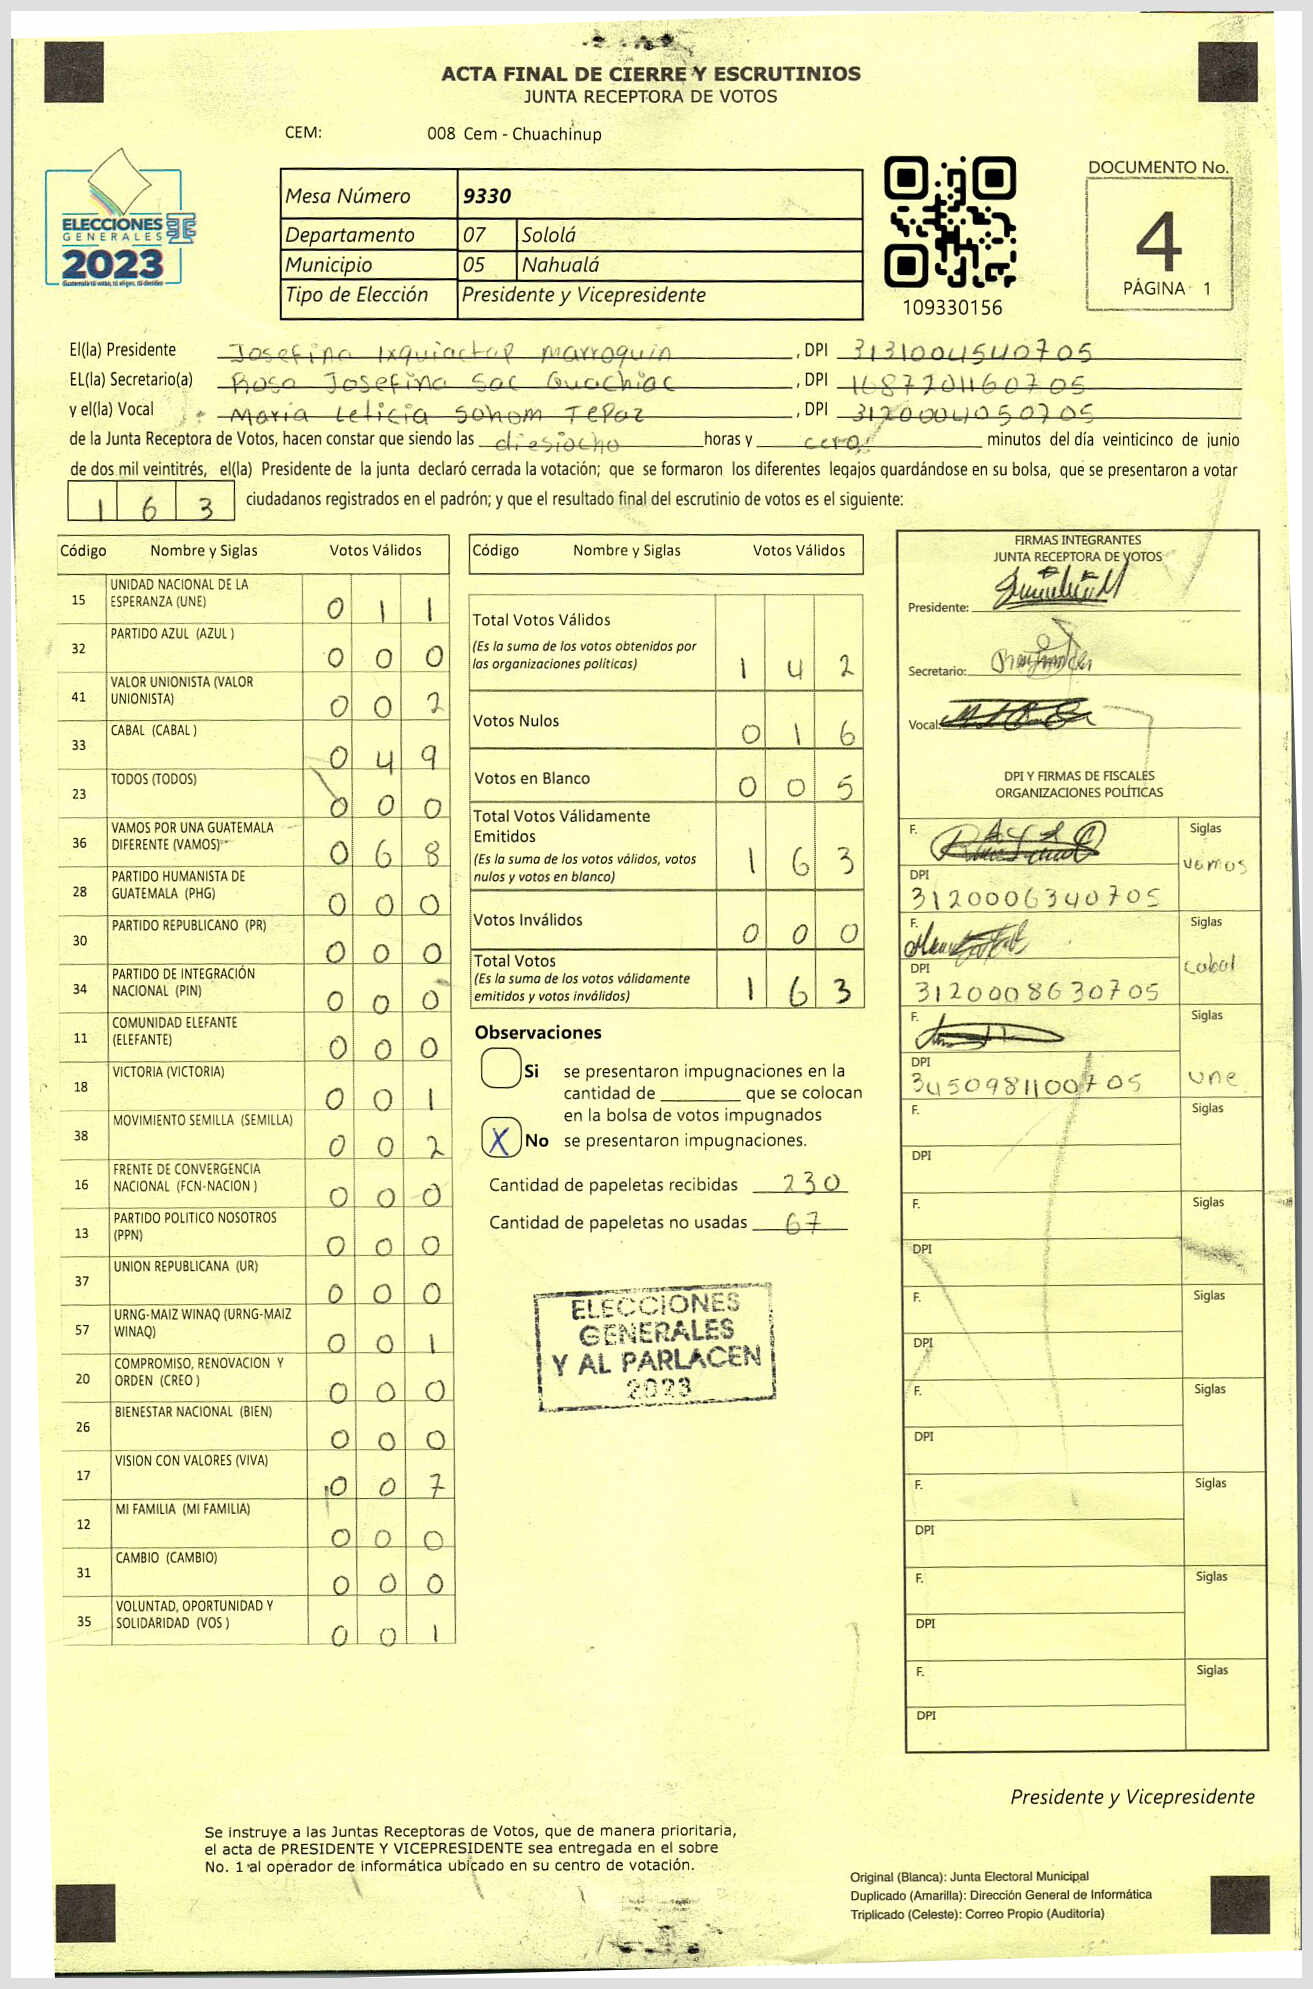 ACTA FINAL DE CIERRE Y ESCRUTINIOS
JUNTA RECEPTORA DE VOTOS
CEM: 008 Cem - Chuachinup
ELECCIONES
GENERALES
2023
Mesa Número 9330
Departamento 07 Sololá
Municipio 05 Nahualá
Tipo de Elección Presidente y Vicepresidente
109330156
DOCUMENTO No.
4
PÁGINA 1
El(la) Presidente Josefina Ixquiactap Marroquin, DPI 3131004540705
EL(la) Secretario(a) Rosa Josefina Sac Guachiac, DPI 1687201160705
y el(la) Vocal Maria Leticia Sohom Tepaz, DPI 3120004050705
de la Junta Receptora de Votos, hacen constar que siendo las diesiocho horas y cero minutos del día veinticinco de junio
de dos mil veintitrés, el(la) Presidente de la junta declaró cerrada la votación; que se formaron los diferentes legajos quardándose en su bolsa, que se presentaron a votar
163 ciudadanos registrados en el padrón; y que el resultado final del escrutinio de votos es el siguiente:
Código Nombre y Siglas Votos Válidos
15 UNIDAD NACIONAL DE LA ESPERANZA (UNE) 011
32 PARTIDO AZUL (AZUL ) 000
41 VALOR UNIONISTA (VALOR UNIONISTA) 002
33 CABAL (CABAL ) 049
23 TODOS (TODOS) 000
36 VAMOS POR UNA GUATEMALA DIFERENTE (VAMOS) 068
28 PARTIDO HUMANISTA DE GUATEMALA (PHG) 000
30 PARTIDO REPUBLICANO (PR) 000
34 PARTIDO DE INTEGRACIÓN NACIONAL (PIN) 000
11 COMUNIDAD ELEFANTE (ELEFANTE) 000
18 VICTORIA (VICTORIA) 001
38 MOVIMIENTO SEMILLA (SEMILLA) 002
16 FRENTE DE CONVERGENCIA NACIONAL (FCN-NACION ) 000
13 PARTIDO POLITICO NOSOTROS (PPN) 000
37 UNION REPUBLICANA (UR) 000
57 URNG-MAIZ WINAQ (URNG-MAIZ WINAQ) 001
20 COMPROMISO, RENOVACION Y ORDEN (CREO ) 000
26 BIENESTAR NACIONAL (BIEN) 000
17 VISION CON VALORES (VIVA) 007
12 MI FAMILIA (MI FAMILIA) 000
31 CAMBIO (CAMBIO) 000
35 VOLUNTAD, OPORTUNIDAD Y SOLIDARIDAD (VOS ) 001
Código Nombre y Siglas Votos Válidos
Total Votos Válidos
(Es la suma de los votos obtenidos por
las organizaciones politicas) 142
Votos Nulos 016
Votos en Blanco 005
Total Votos Válidamente
Emitidos
(Es la suma de los votos válidos, votos
nulos y votos en blanco) 163
Votos Inválidos 000
Total Votos
(Es la suma de los votos válidamente
emitidos y votos inválidos) 163
Observaciones
Si se presentaron impugnaciones en la
cantidad de ________ que se colocan
en la bolsa de votos impugnados
X No se presentaron impugnaciones.
Cantidad de papeletas recibidas 230
Cantidad de papeletas no usadas 67
ELECCIONES
GENERALES
Y AL PARLACEN
2023
FIRMAS INTEGRANTES
JUNTA RECEPTORA DE VOTOS
Presidente:
Secretario:
Vocal:
DPI Y FIRMAS DE FISCALES
ORGANIZACIONES POLÍTICAS
F. Siglas
vamos
DPI
3120006340705
F. Siglas
cabal
DPI
3120008630705
F. Siglas
une
DPI
3450981100705
F. Siglas
DPI
F. Siglas
DPI
F. Siglas
DPI
F. Siglas
DPI
F. Siglas
DPI
F. Siglas
DPI
F. Siglas
DPI
Presidente y Vicepresidente
Se instruye a las Juntas Receptoras de Votos, que de manera prioritaria,
el acta de PRESIDENTE Y VICEPRESIDENTE sea entregada en el sobre
No. 1 al operador de informática ubicado en su centro de votación.
Original (Blanca): Junta Electoral Municipal
Duplicado (Amarilla): Dirección General de Informática
Triplicado (Celeste): Correo Propio (Auditoría)